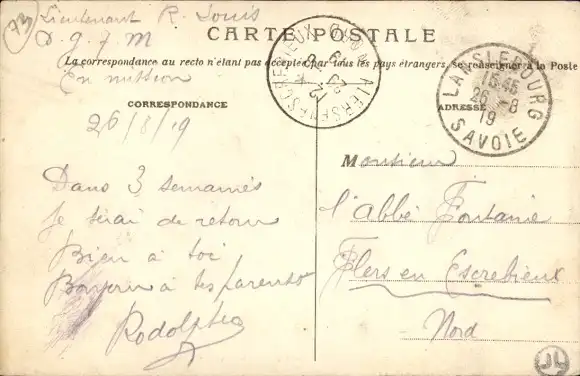 73
Lieutenant R. Louis
D.G.F.M
En mission
CARTE POSTALE
La correspondance au recto n'étant pas acceptée par tous les pays étrangers, se renseigner à la Poste
CORRESPONDANCE
ADRESSE
LANSLEBOURG
15·45
26-8
19
SAVOIE
26/8/19
Dans 3 semaines
Je serai de retour
Bien à toi
Bonjour à tes parents
Rodolphe
Monsieur
l'abbé Fontanie
Flers en Escrebieux
Nord
JL